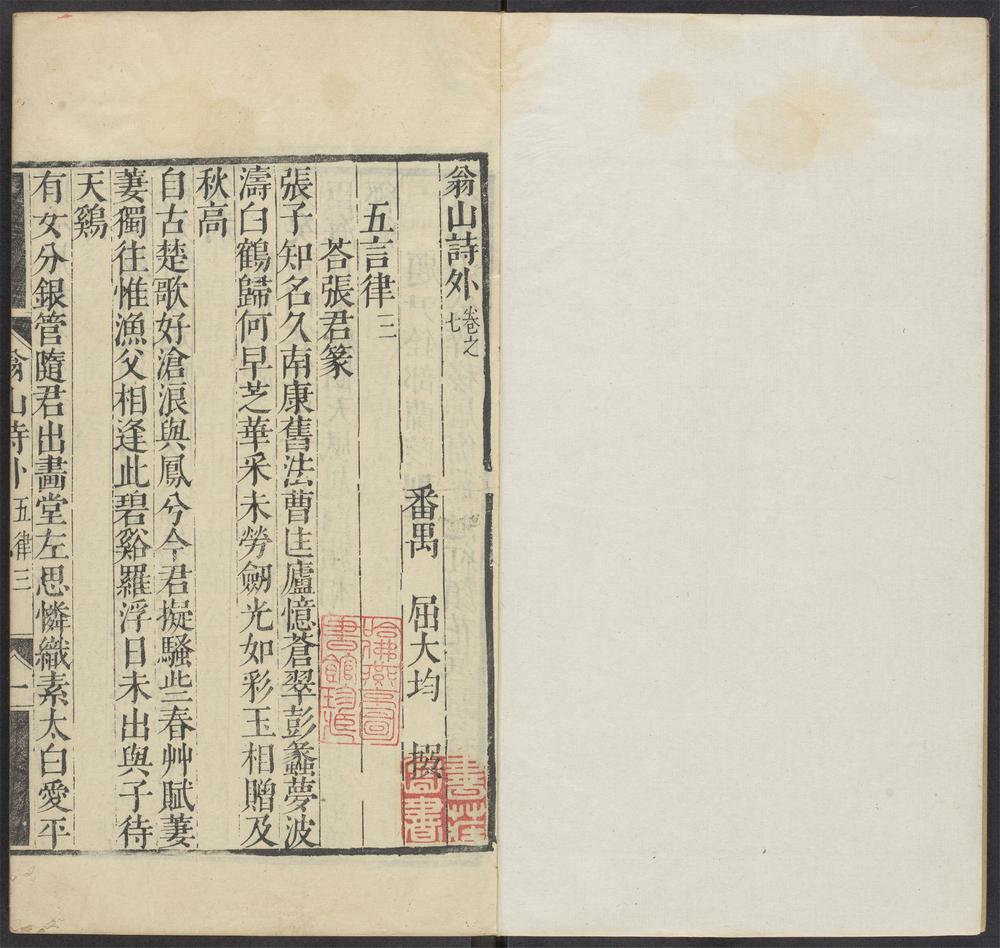 翁山詩外卷之七
番禺 屈大均 撰
五言律三
荅張君篆
張子知名久南康舊法曹匡廬憶蒼翠彭蠡夢波
濤白鶴歸何早芝華采未勞劒光如彩玉相贈及
秋高
自古楚歌好滄浪與鳳兮今君擬騷些春艸賦萋
萋獨往惟漁父相逢此碧谿羅浮日未出與子待
天鷄
有女分銀管隨君出畵堂左思憐織素太白愛平
翁山詩外 五律三 一
哈佛燕京圖書館珍藏